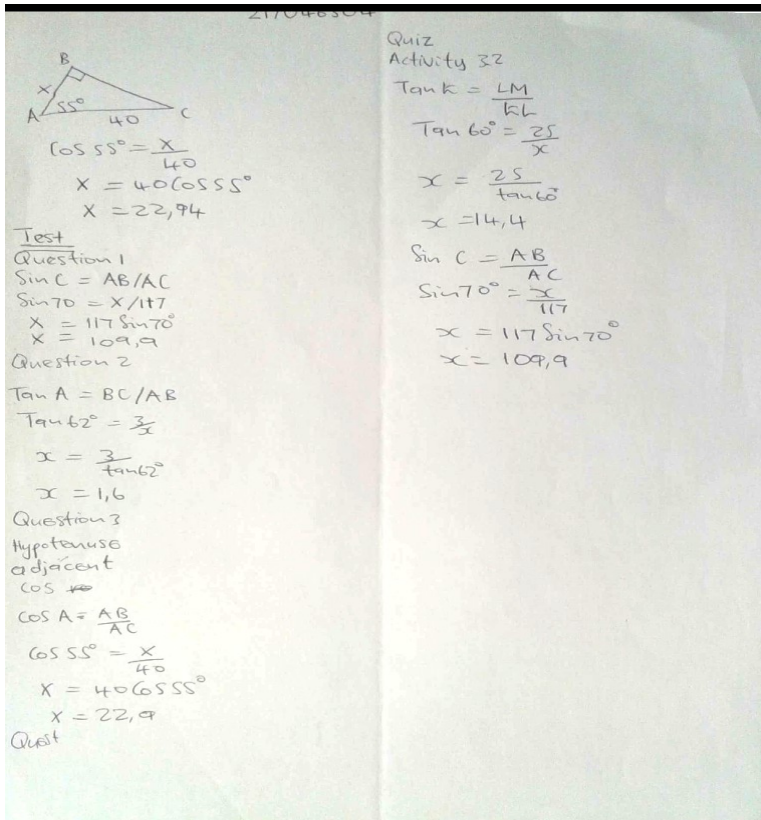 B
x
A 55° C
40
Cos 55° = x/40
x = 40 Cos 55°
x = 22,94
Test
Question 1
Sin C = AB/AC
Sin 70 = x/117
x = 117 Sin 70°
x = 109,9
Question 2
Tan A = BC/AB
Tan 62° = 3/x
x = 3/tan 62°
x = 1,6
Question 3
Hypotenuse
adjacent
cos
cos A = AB/AC
Cos 55° = x/40
x = 40 Cos 55°
x = 22,9
Quest
Quiz
Activity 3.2
Tan K = LM/KL
Tan 60° = 25/x
x = 25/tan 60°
x = 14,4
Sin C = AB/AC
Sin 70° = x/117
x = 117 Sin 70°
x = 109,9